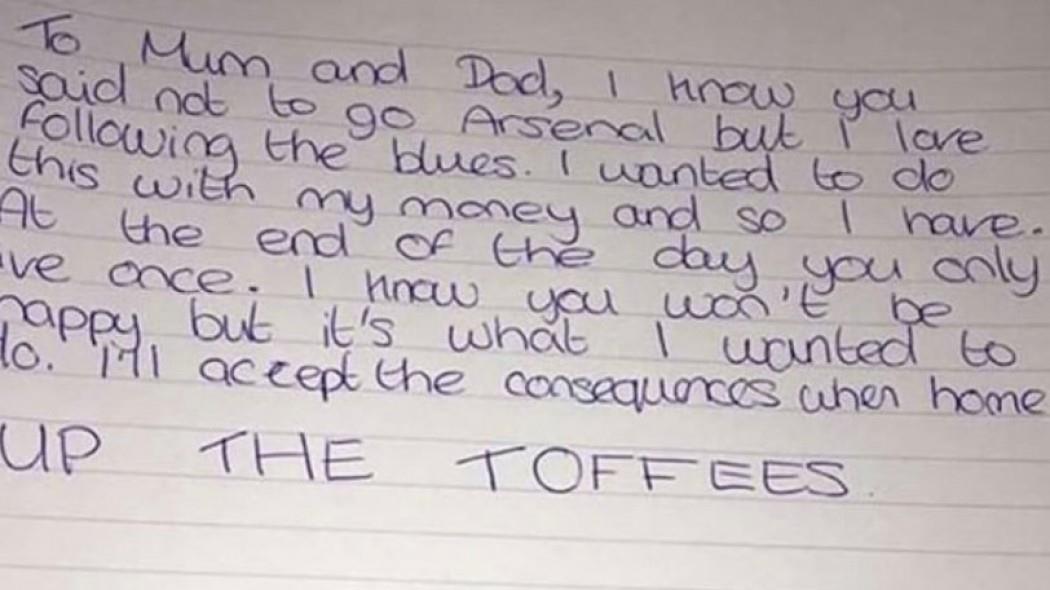 To Mum and Dad, I know you
said not to go Arsenal but I love
following the blues. I wanted to do
this with my money and so I have.
At the end of the day you only
ve once. I know you won't be
happy but it's what I wanted to
do. I'll accept the consequences when home
UP THE TOFFEES.